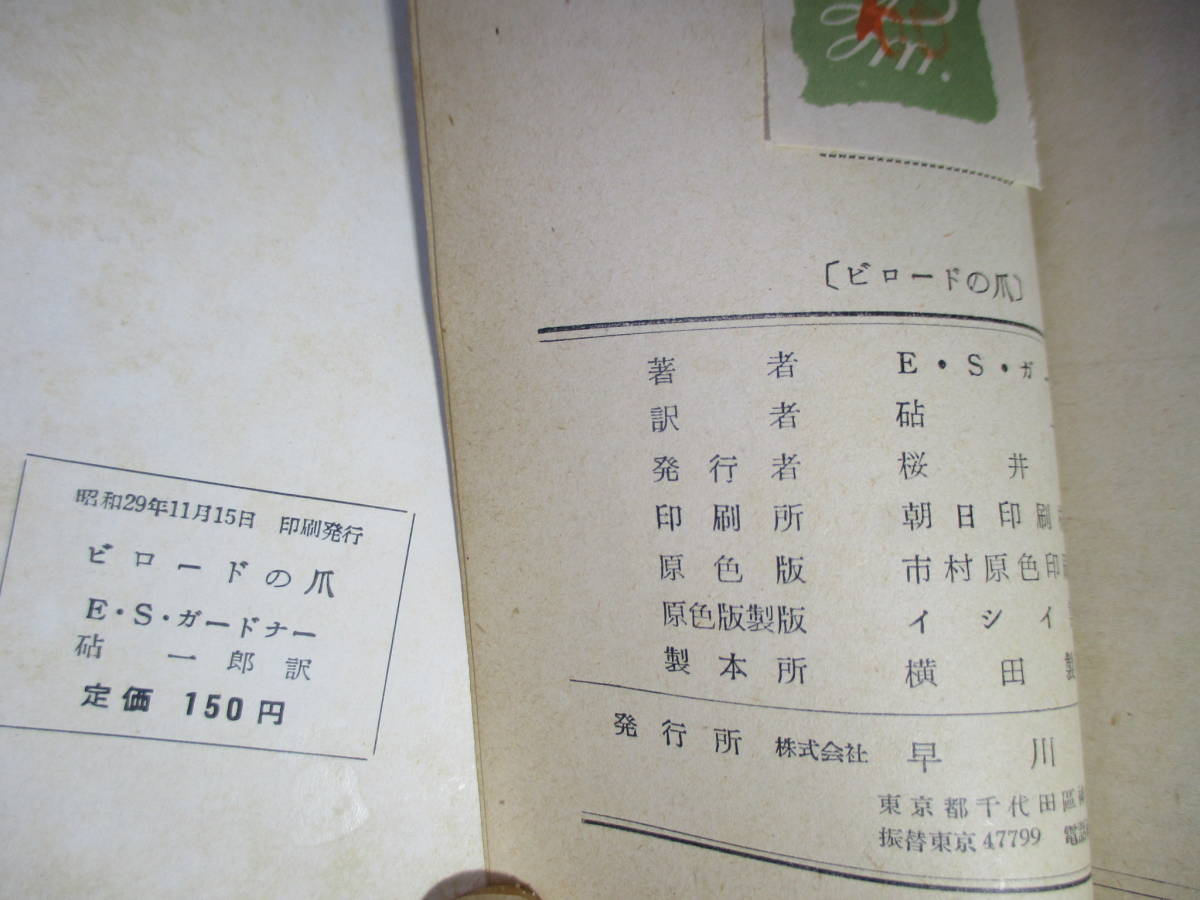 昭和29年11月15日 印刷発行
ビロードの爪
E・S・ガードナー
砧 一郎 訳
定価 150円
〔ビロードの爪〕
著者 E・S・ガー
訳者 砧
発行者 桜井
印刷所 朝日印刷
原色版 市村原色印
原色版製版 イシイ
製本所 横田製
発行所 株式会社 早川
東京都千代田區
振替東京47799 電話